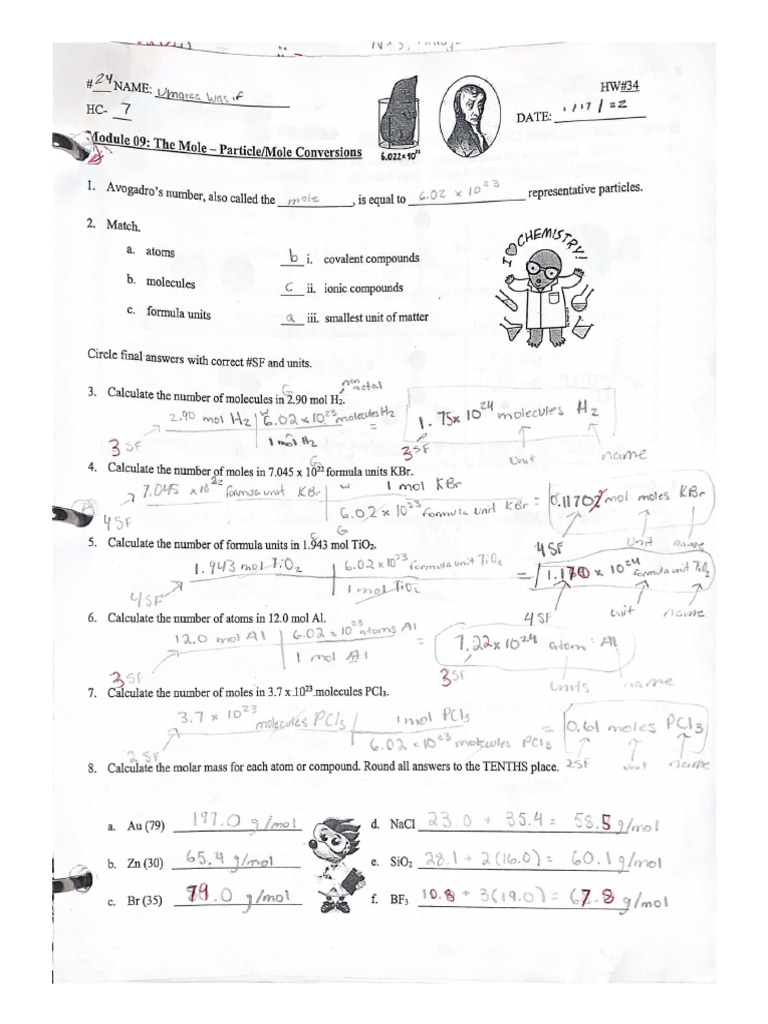 #24 NAME: Umaiza Wasif
HW#34
HC- 7
DATE: 1/17/22
6.022x10²³
Module 09: The Mole – Particle/Mole Conversions
1. Avogadro's number, also called the mole, is equal to 6.02 x 10²³ representative particles.
2. Match.
I CHEMISTRY!
a. atoms
b i. covalent compounds
b. molecules
c ii. ionic compounds
c. formula units
a iii. smallest unit of matter
Circle final answers with correct #SF and units.
G non metal
3. Calculate the number of molecules in 2.90 mol H₂.
2.90 mol H₂ | 6.02 x 10²³ molecules H₂ = 1.75x10²⁴ molecules H₂
1 mol H₂
3 SF 3 SF unit name
4. Calculate the number of moles in 7.045 x 10²² formula units KBr.
7.045 x10²² formula unit KBr | 1 mol KBr
6.02 x 10²³ formula unit KBr = 0.1170 mol moles KBr
4 SF G 4 SF unit name
5. Calculate the number of formula units in 1.943 mol TiO₂.
1.943 mol TiO₂ | 6.02 x 10²³ formula unit TiO₂ = 1.170 x 10²⁴ formula unit TiO₂
1 mol TiO₂
4 SF 4 SF unit name
6. Calculate the number of atoms in 12.0 mol Al.
12.0 mol Al | 6.02 x 10²³ atoms Al = 7.22x10²⁴ atom Al
1 mol Al
3 SF 3 SF units name
7. Calculate the number of moles in 3.7 x 10²³ molecules PCl₃.
3.7 x 10²³ molecules PCl₃ | 1 mol PCl₃ = 0.61 moles PCl₃
6.02 x 10²³ molecules PCl₃
2 SF 2SF unit name
8. Calculate the molar mass for each atom or compound. Round all answers to the TENTHS place.
a. Au (79) 197.0 g/mol
d. NaCl 23.0 + 35.4 = 58.5 g/mol
b. Zn (30) 65.4 g/mol
e. SiO₂ 28.1 + 2(16.0) = 60.1 g/mol
c. Br (35) 79.0 g/mol
f. BF₃ 10.8 + 3(19.0) = 67.8 g/mol